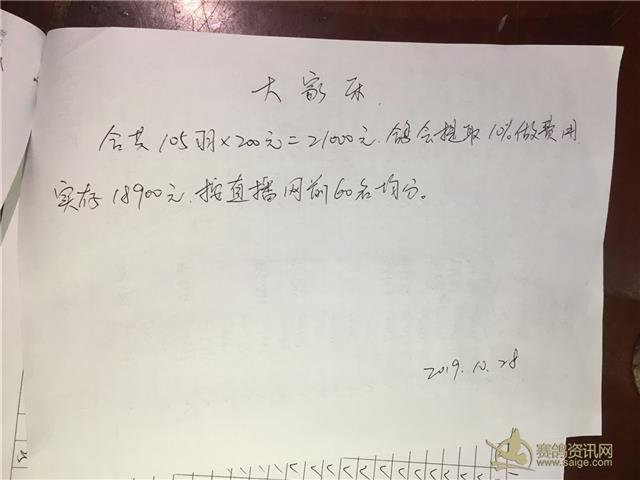 大家乐
合共105羽×200元=21000元.鸽会提取10%做费用
实存18900元.按直播网前60名均分。
2019.10.28
赛鸽资讯网
www.saige.com